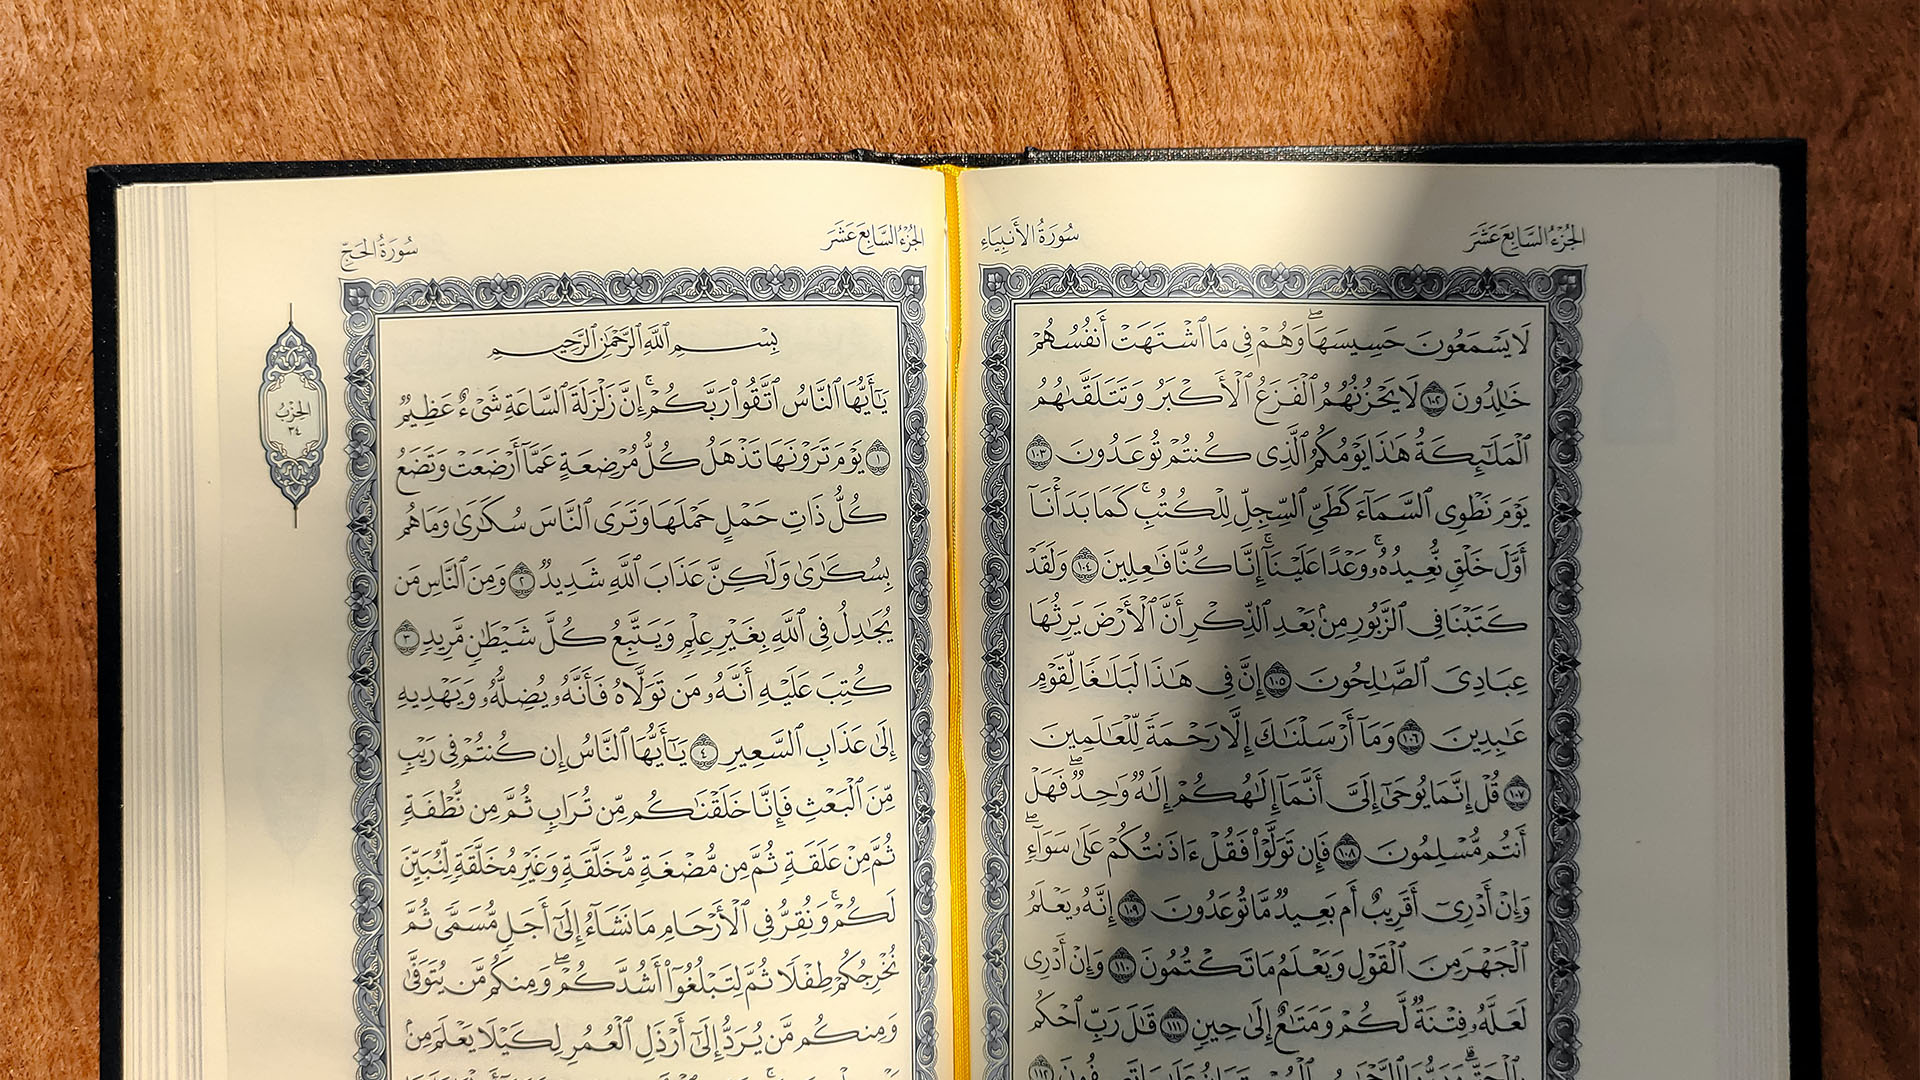 الجُزْءُ السَّابِعَ عَشَرَ
سُورَةُ الأَنبِيَاءِ
لَا يَسْمَعُونَ حَسِيسَهَاۖ وَهُمْ فِي مَا ٱشْتَهَتْ أَنفُسُهُمْ
خَٰلِدُونَ ١٠٢ لَا يَحْزُنُهُمُ ٱلْفَزَعُ ٱلْأَكْبَرُ وَتَتَلَقَّىٰهُمُ
ٱلْمَلَٰٓئِكَةُ هَٰذَا يَوْمُكُمُ ٱلَّذِي كُنتُمْ تُوعَدُونَ ١٠٣
يَوْمَ نَطْوِي ٱلسَّمَآءَ كَطَيِّ ٱلسِّجِلِّ لِلْكُتُبِۚ كَمَا بَدَأْنَآ
أَوَّلَ خَلْقٍ نُّعِيدُهُۥۚ وَعْدًا عَلَيْنَآۚ إِنَّا كُنَّا فَٰعِلِينَ ١٠٤ وَلَقَدْ
كَتَبْنَا فِي ٱلزَّبُورِ مِنۢ بَعْدِ ٱلذِّكْرِ أَنَّ ٱلْأَرْضَ يَرِثُهَا
عِبَادِيَ ٱلصَّٰلِحُونَ ١٠٥ إِنَّ فِي هَٰذَا لَبَلَٰغًا لِّقَوْمٍ
عَٰبِدِينَ ١٠٦ وَمَآ أَرْسَلْنَٰكَ إِلَّا رَحْمَةً لِّلْعَٰلَمِينَ
١٠٧ قُلْ إِنَّمَا يُوحَىٰٓ إِلَيَّ أَنَّمَآ إِلَٰهُكُمْ إِلَٰهٌ وَٰحِدٌۖ فَهَلْ
أَنتُم مُّسْلِمُونَ ١٠٨ فَإِن تَوَلَّوْا۟ فَقُلْ ءَاذَنتُكُمْ عَلَىٰ سَوَآءٍۖ
وَإِنْ أَدْرِيٓ أَقَرِيبٌ أَم بَعِيدٌ مَّا تُوعَدُونَ ١٠٩ إِنَّهُۥ يَعْلَمُ
ٱلْجَهْرَ مِنَ ٱلْقَوْلِ وَيَعْلَمُ مَا تَكْتُمُونَ ١١٠ وَإِنْ أَدْرِي
لَعَلَّهُۥ فِتْنَةٌ لَّكُمْ وَمَتَٰعٌ إِلَىٰ حِينٍ ١١١ قَٰلَ رَبِّ ٱحْكُم
الجُزْءُ السَّابِعَ عَشَرَ
سُورَةُ الحَجِّ
بِسْمِ ٱللَّهِ ٱلرَّحْمَٰنِ ٱلرَّحِيمِ
يَٰٓأَيُّهَا ٱلنَّاسُ ٱتَّقُوا۟ رَبَّكُمْۚ إِنَّ زَلْزَلَةَ ٱلسَّاعَةِ شَيْءٌ عَظِيمٌ
١ يَوْمَ تَرَوْنَهَا تَذْهَلُ كُلُّ مُرْضِعَةٍ عَمَّآ أَرْضَعَتْ وَتَضَعُ
كُلُّ ذَاتِ حَمْلٍ حَمْلَهَا وَتَرَى ٱلنَّاسَ سُكَٰرَىٰ وَمَا هُم
بِسُكَٰرَىٰ وَلَٰكِنَّ عَذَابَ ٱللَّهِ شَدِيدٌ ٢ وَمِنَ ٱلنَّاسِ مَن
يُجَٰدِلُ فِي ٱللَّهِ بِغَيْرِ عِلْمٍ وَيَتَّبِعُ كُلَّ شَيْطَٰنٍ مَّرِيدٍ ٣
كُتِبَ عَلَيْهِ أَنَّهُۥ مَن تَوَلَّاهُ فَأَنَّهُۥ يُضِلُّهُۥ وَيَهْدِيهِ
إِلَىٰ عَذَابِ ٱلسَّعِيرِ ٤ يَٰٓأَيُّهَا ٱلنَّاسُ إِن كُنتُمْ فِي رَيْبٍ
مِّنَ ٱلْبَعْثِ فَإِنَّا خَلَقْنَٰكُم مِّن تُرَابٍ ثُمَّ مِن نُّطْفَةٍ
ثُمَّ مِنْ عَلَقَةٍ ثُمَّ مِن مُّضْغَةٍ مُّخَلَّقَةٍ وَغَيْرِ مُخَلَّقَةٍ لِّنُبَيِّنَ
لَكُمْۚ وَنُقِرُّ فِي ٱلْأَرْحَامِ مَا نَشَآءُ إِلَىٰٓ أَجَلٍ مُّسَمًّى ثُمَّ
نُخْرِجُكُمْ طِفْلًا ثُمَّ لِتَبْلُغُوٓا۟ أَشُدَّكُمْۖ وَمِنكُم مَّن يُتَوَفَّىٰ
وَمِنكُم مَّن يُرَدُّ إِلَىٰٓ أَرْذَلِ ٱلْعُمُرِ لِكَيْلَا يَعْلَمَ مِنۢ
الحِزْبُ
٣٤